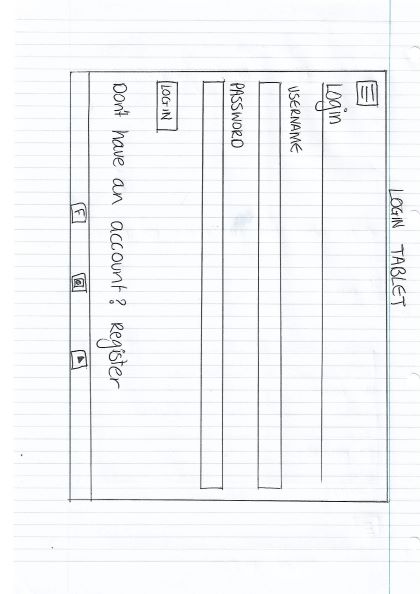 LOGIN TABLET
Login
USERNAME
PASSWORD
LOGIN
Don't have an account? Register
F